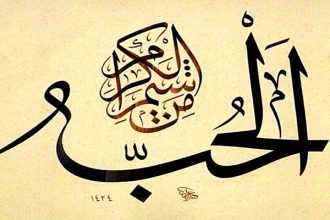 الحُبُّ
من شيم الكرام
١٤٢٤